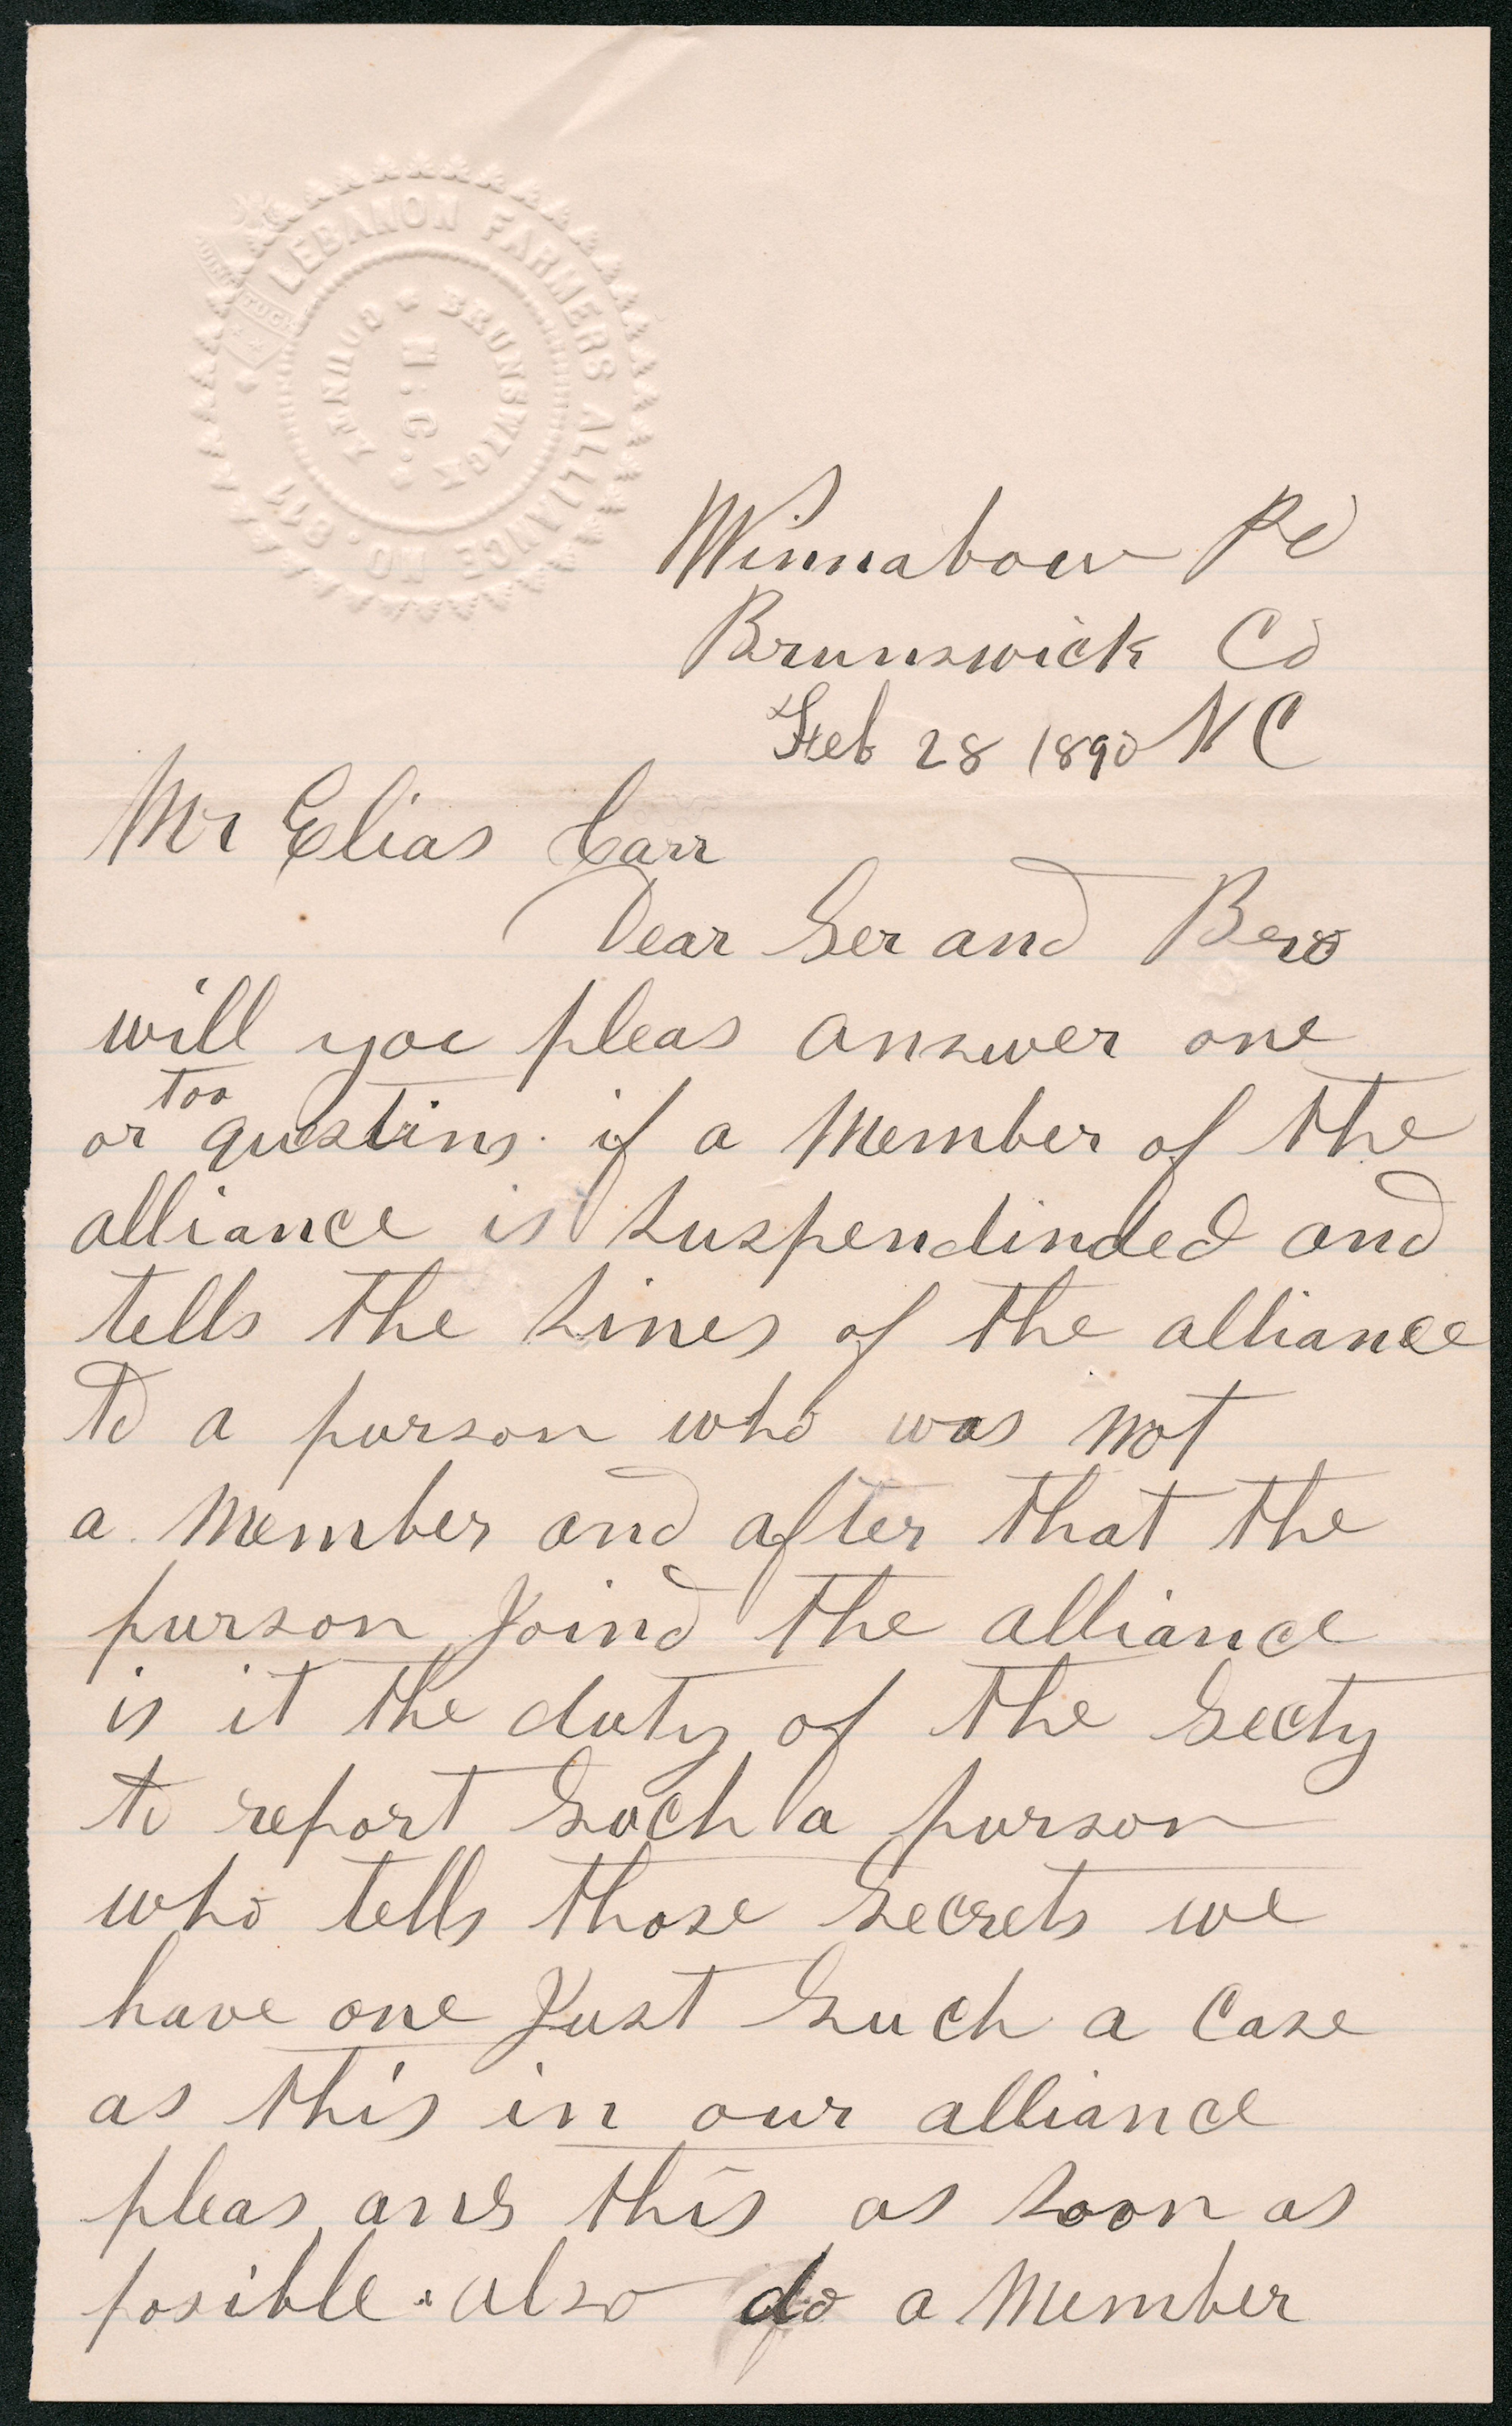 LEBANON FARMERS ALLIANCE NO. 811
BRUNSWICK COUNTY
N.C.
Winnabow PO
Brunswick Co
Feb 28 1890 N C
Mr Elias Carr
Dear Ser and Bero
will you pleas answer one
too
or questins. if a Member of the
alliance is suspendinded and
tells the sines of the alliance
to a purson who was not
a Member and after that the
purson Joind the alliance
is it the duty of the Secty
to report Such a purson
who tells those Secrets we
have one Just Such a Case
as this in our alliance
pleas ans this as soon as
posible. also do a Member